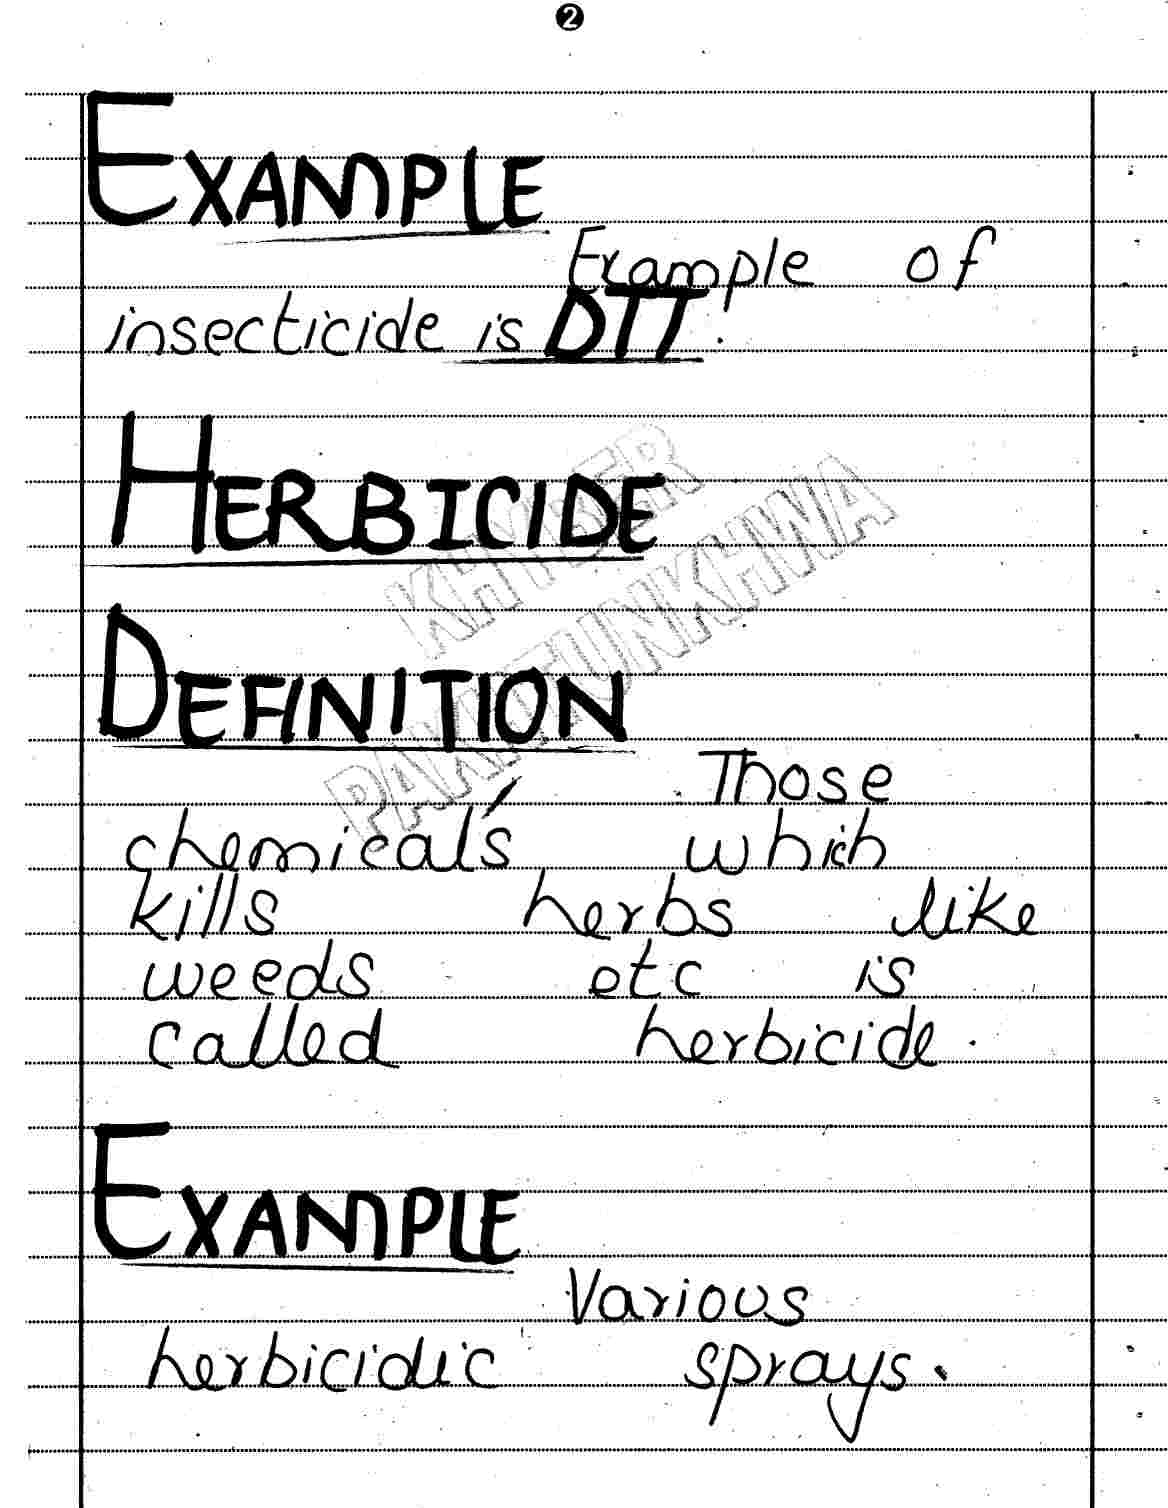 2
EXAMPLE
Example of
insecticide is DTT.
HERBICIDE
KHYBER
PAKHTUNKHWA
DEFINITION
Those
chemical's which
kills herbs like
weeds etc is
called herbicide.
EXAMPLE
Various
herbicidic sprays.